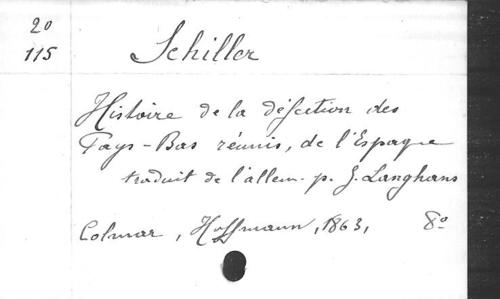 20
115
Schiller
Histoire de la défection des
Pays-Bas réunis, de l'Espagne
traduit de l'allem. p. J. Langhans
Colmar, Hoffmann, 1863, 8o